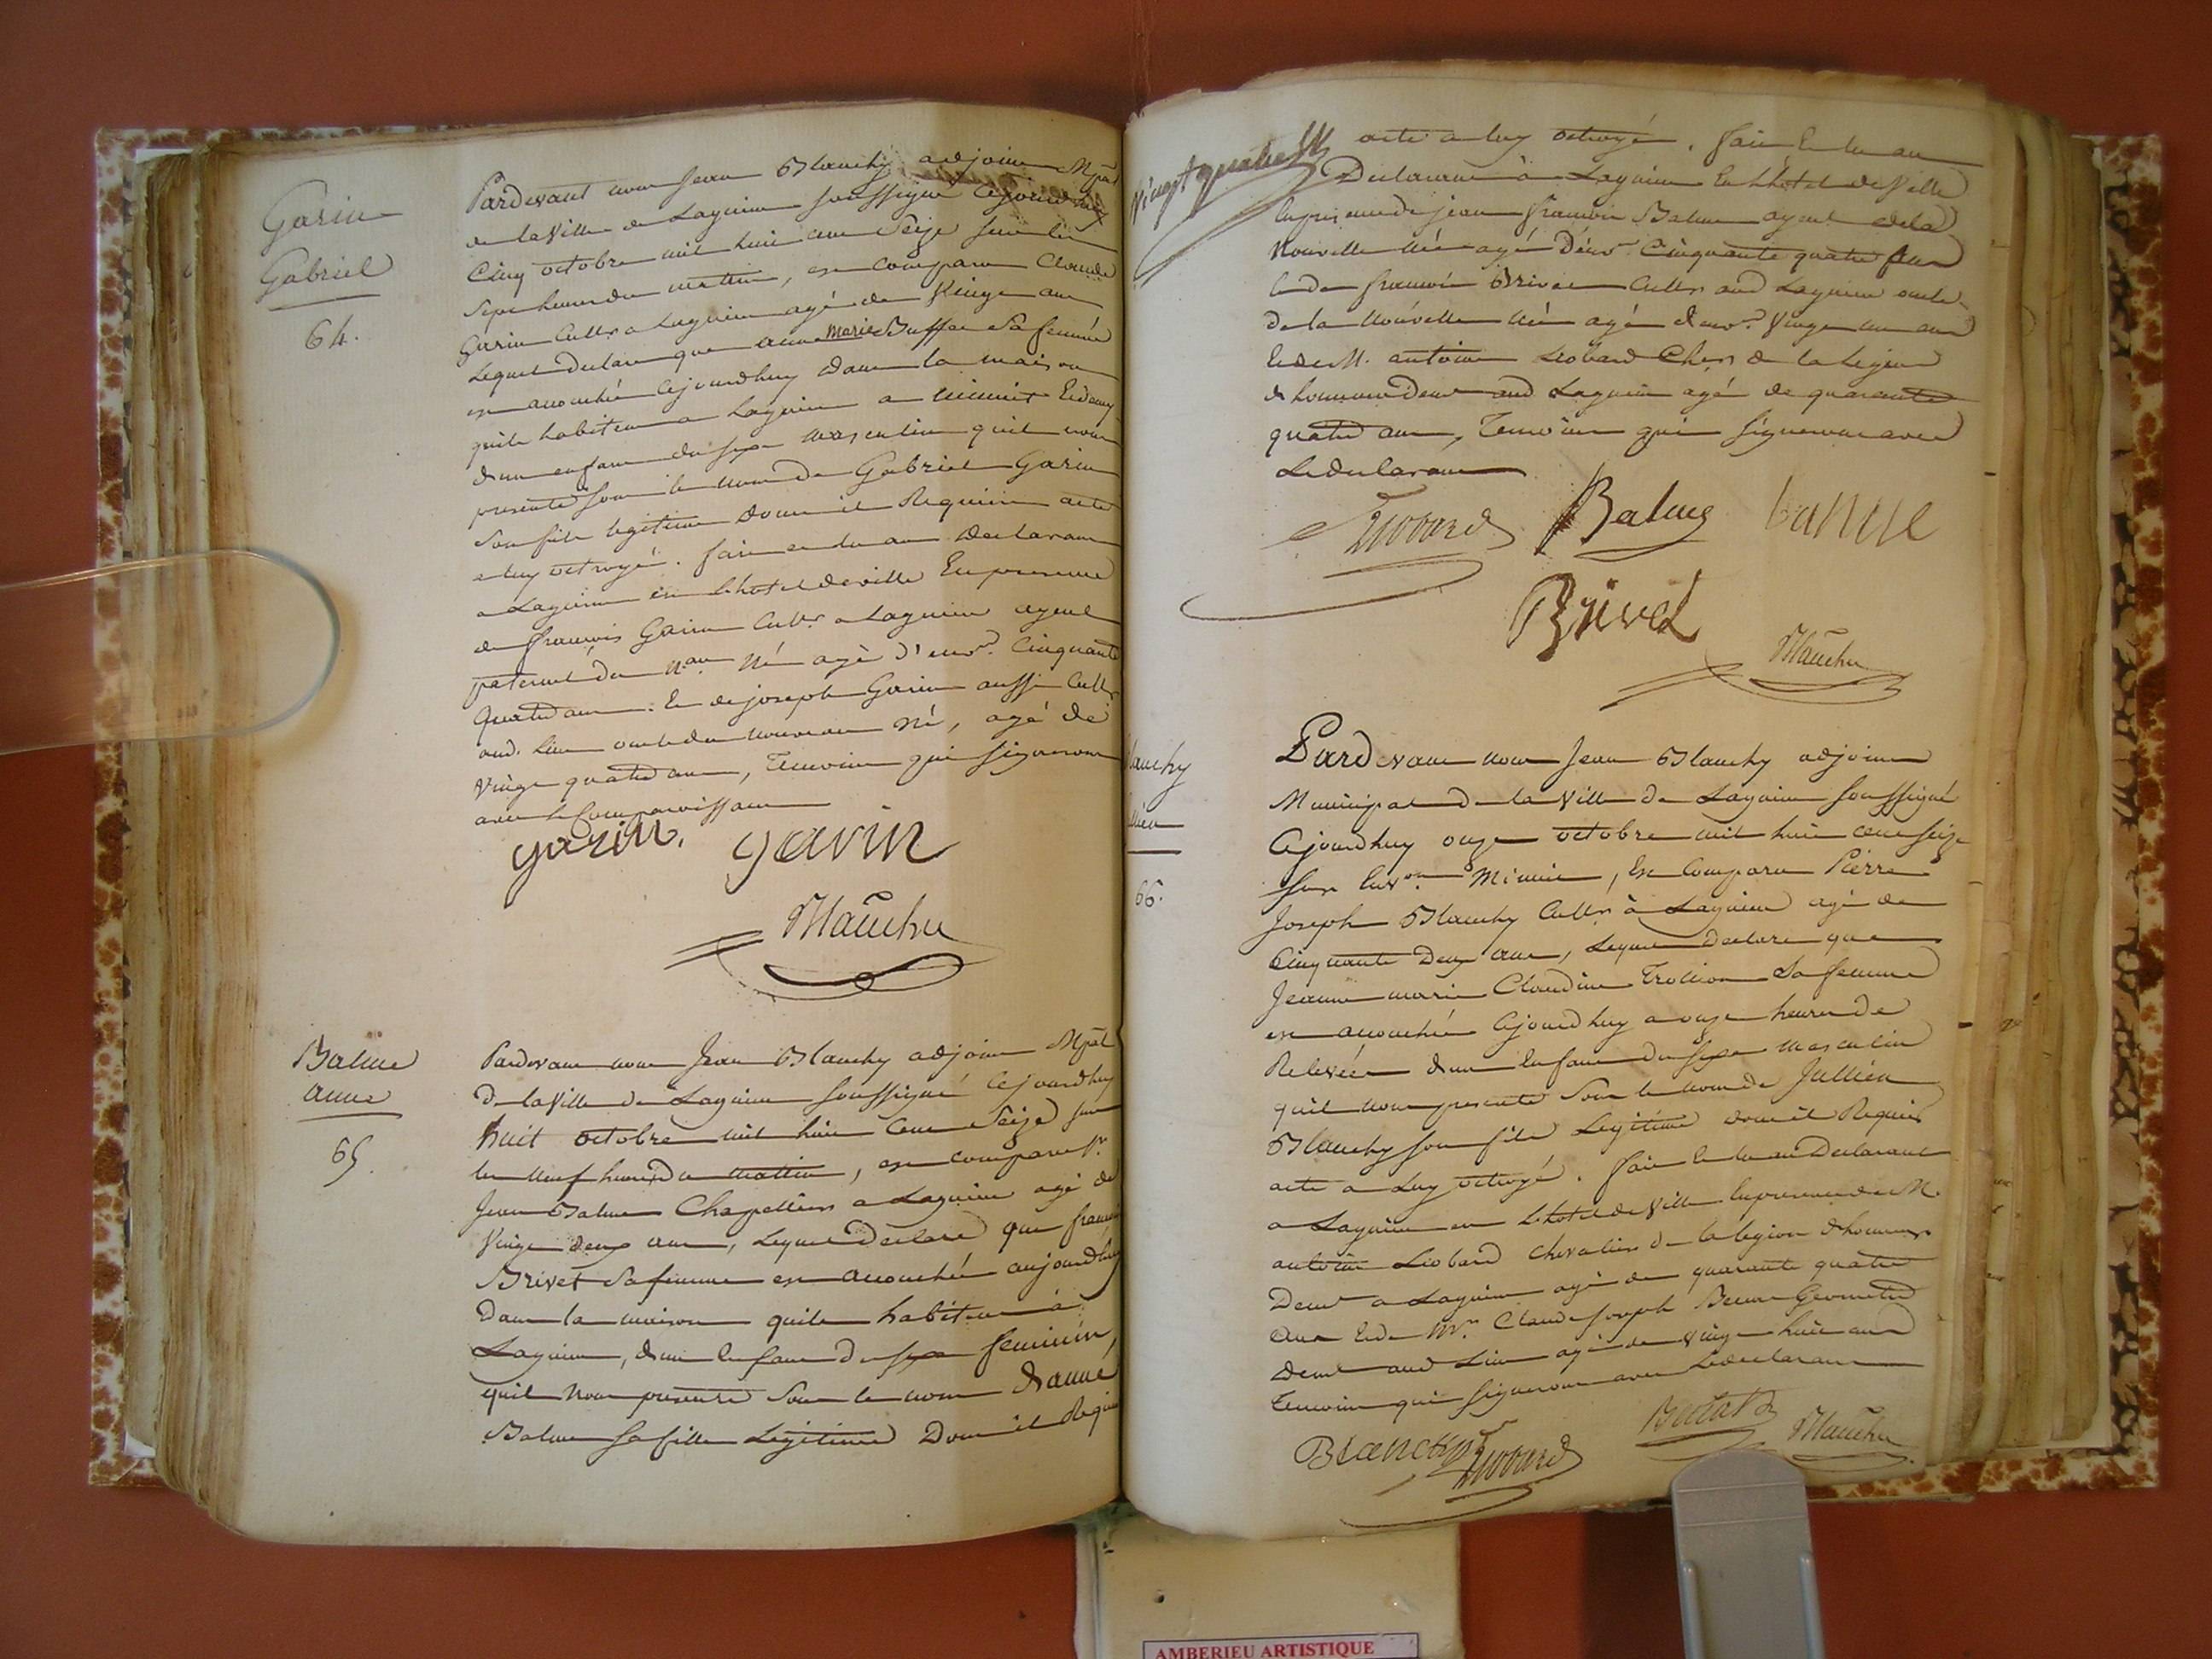 Garin
Gabriel
64.
Pardevant nous Jean Blanchy adjoint Mpal
de la Ville de Lagnieu soussigné Cejourdhuy
Cinq octobre mil huit cent Seize sur les
Sept heures du mattin, est comparu Claude
Garin Cultr a Lagnieu agé de Vingt ans
Lequel declare que anne Marie Buffet Sa femme
est accouchée Cejourdhuy dans la maison
quils habitent a Lagnieu a minuit
d'un enfant du sexe masculin quil nous
presente sous le nom de Gabriel Garin
Son fils legitime dont il Requiert acte
a luy octroyé. fait et lu au Declarant
a Lagnieu en L'hotel de ville En presence
de francois Garin Cultr a Lagnieu ayeul
paternel du Nau Né agé d'envn. Cinquante
Quatre ans. Et de joseph Garin aussi Cultr
aud. Lieu oncle du nouveau Né, agé de
Vingt quatre ans, Temoins qui signeront
avec le Comparoissant
garin. garin
Blanchy
Balme
anne
65.
Pardevant nous Jean Blanchy adjoint Mpal
de la Ville de Lagnieu soussigné Cejourdhuy
huit octobre mil huit Cent Seize sur
les neuf heures du mattin, est comparu Sr.
Jean Balme Chapellier a Lagnieu agé de
Vingt deux ans, Lequel Declare que
Brivet Sa femme est accouchée aujourdhuy
Dans la maison quils habitent à
Lagnieu, d'un Enfant du sexe feminin,
quil nous presente Sous le nom d'anne
Balme Sa fille Legitime Dont il Requiert
Vingt quatre
acte a luy octroyé. fait Et lu au
Declarant à Lagnieu En L'hotel de Ville
En presence de jean francois Balme ayeul de la
Nouvelle Née agé D'envn. Cinquante quatre ans
Et de francois Brivet Cultr aud Lagnieu oncle
de la Nouvelle Née agé d'envn. Vingt un ans
Et de M. antoine Leobard Cher de la Legion
d'honneur Demt aud Lagnieu agé de quarante
quatre ans, Temoins qui signeront avec
Le declarant
Leobard Balme balme
Brivet
Blanchy
Blanchy
66.
Pardevant nous Jean Blanchy adjoint
Municipal de la Ville de Lagnieu soussigné
Cejourdhuy onze octobre mil huit cent seize
sur Envon. Minuit, Est Comparu Pierre
Joseph Blanchy Cultr à Lagnieu agé de
Cinquante Deux ans, Lequel Declare que
Jeanne marie Claudine Sa femme
est accouchée Cejourdhuy a onze heures de
Relevée d'un Enfant du sexe masculin
quil nous presente Sous le nom de Jullien
Blanchy son fils Legitime dont il Requiert
acte a Luy octroyé. fait Et lu au Declarant
a Lagnieu en L'hotel de Ville En presence de M.
antoine Leobard Chevalier de la legion d'honneur
Demt a Lagnieu agé de quarante quatre
ans Et de Mr. Claude Joseph Geometre
Demt aud Lieu agé de Vingt huit ans
Temoins qui signeront avec Le declarant
Blanchy Leobard Blanchy
AMBERIEU ARTISTIQUE